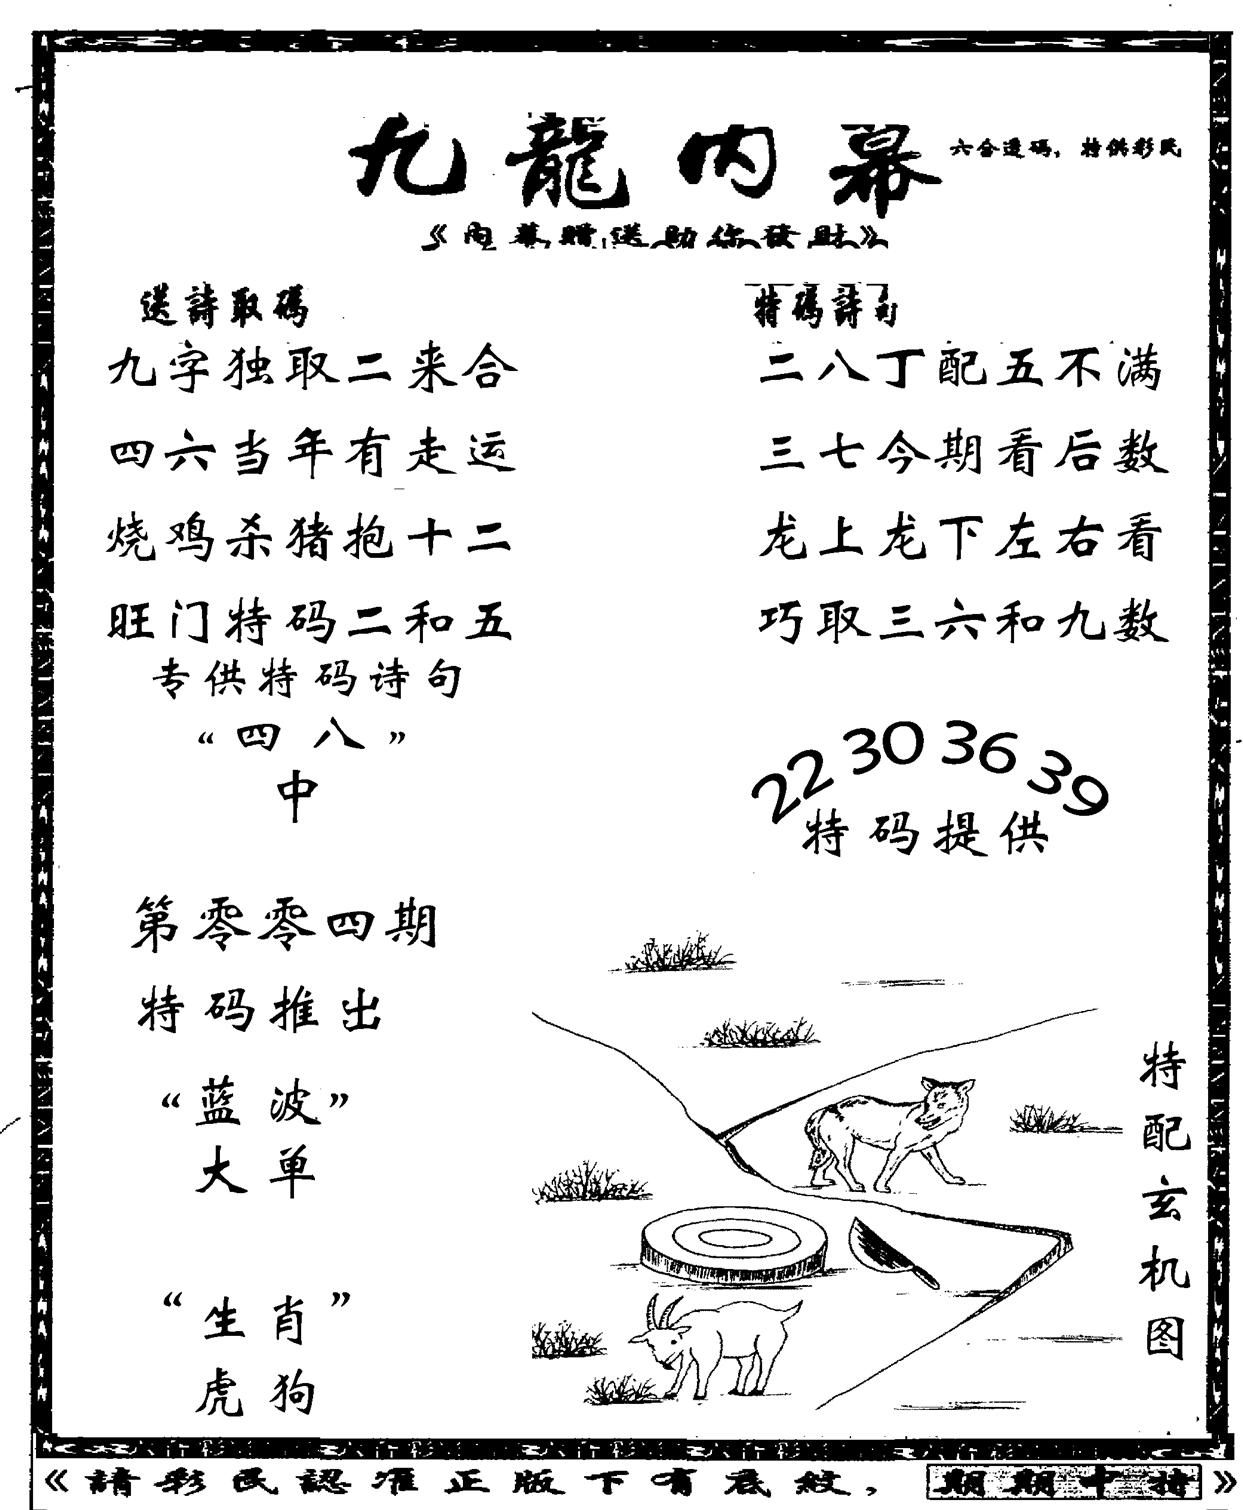 九龍内幕
六合透码，特供彩民
《内幕赠送助你發财》
送詩取碼
九字独取二来合
四六当年有走运
烧鸡杀猪抱十二
旺门特码二和五
专供特码诗句
“四八”
中
第零零四期
特码推出
“蓝波”
大单
“生肖”
虎狗
特碼詩句
二八丁配五不满
三七今期看后数
龙上龙下左右看
巧取三六和九数
22 30 36 39
特码提供
特配玄机图
《請彩民認准正版下有底紋，期期中特》